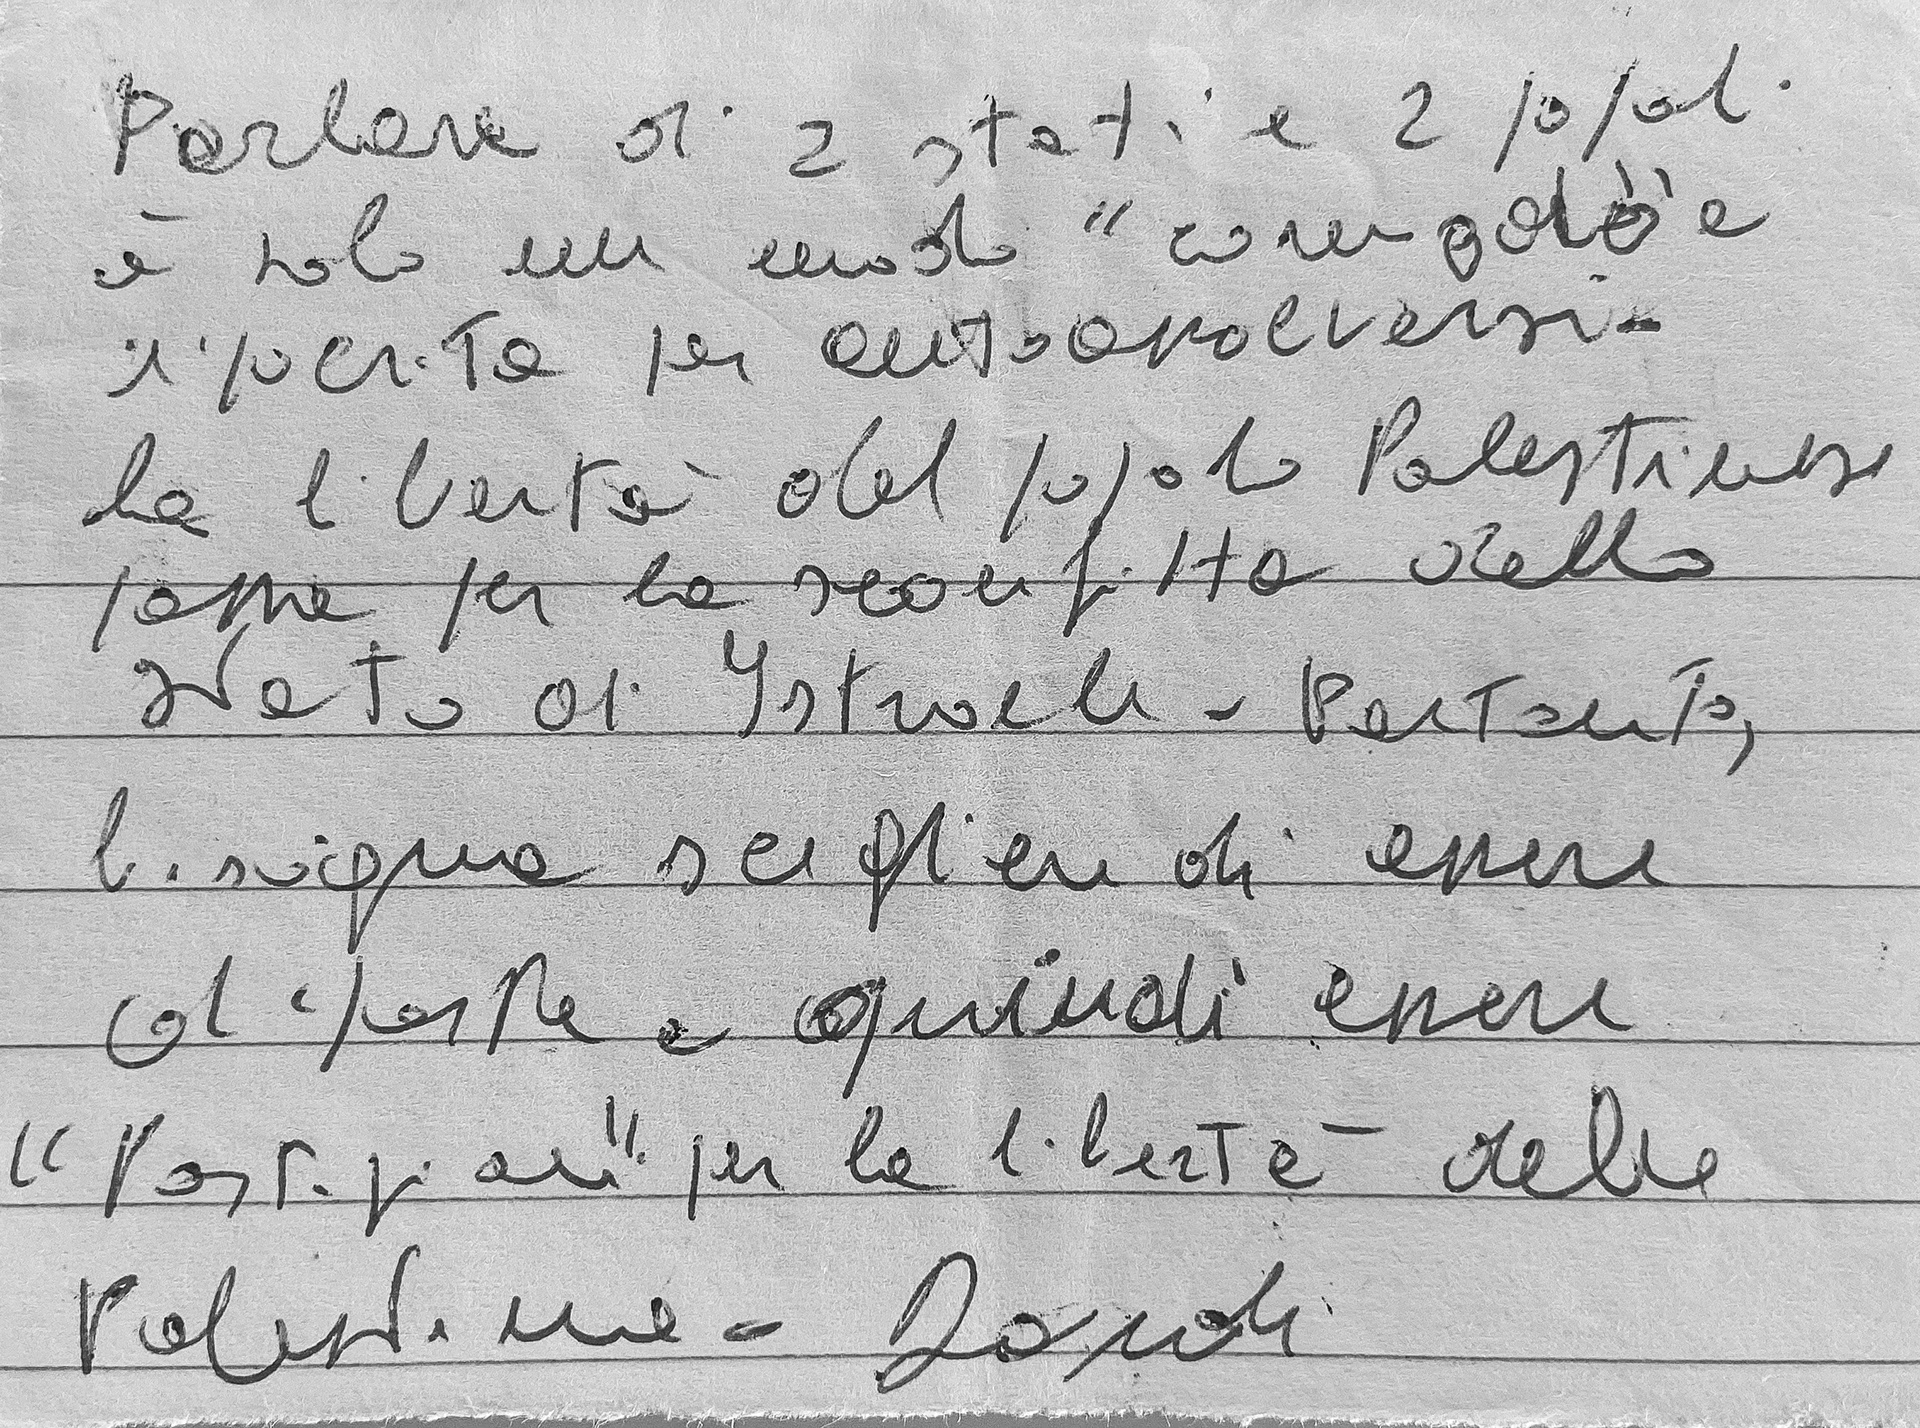 Parlare di 2 stati e 2 popoli
è solo un modo "comodo" e
ipocrita per autoassolversi-
La libertà del popolo Palestinese
passa per la sconfitta dello
stato di Istraele - Pertanto,
bisogna scegliere di essere
di parte e quindi essere
"Partigiani" per la libertà della
Palestina -